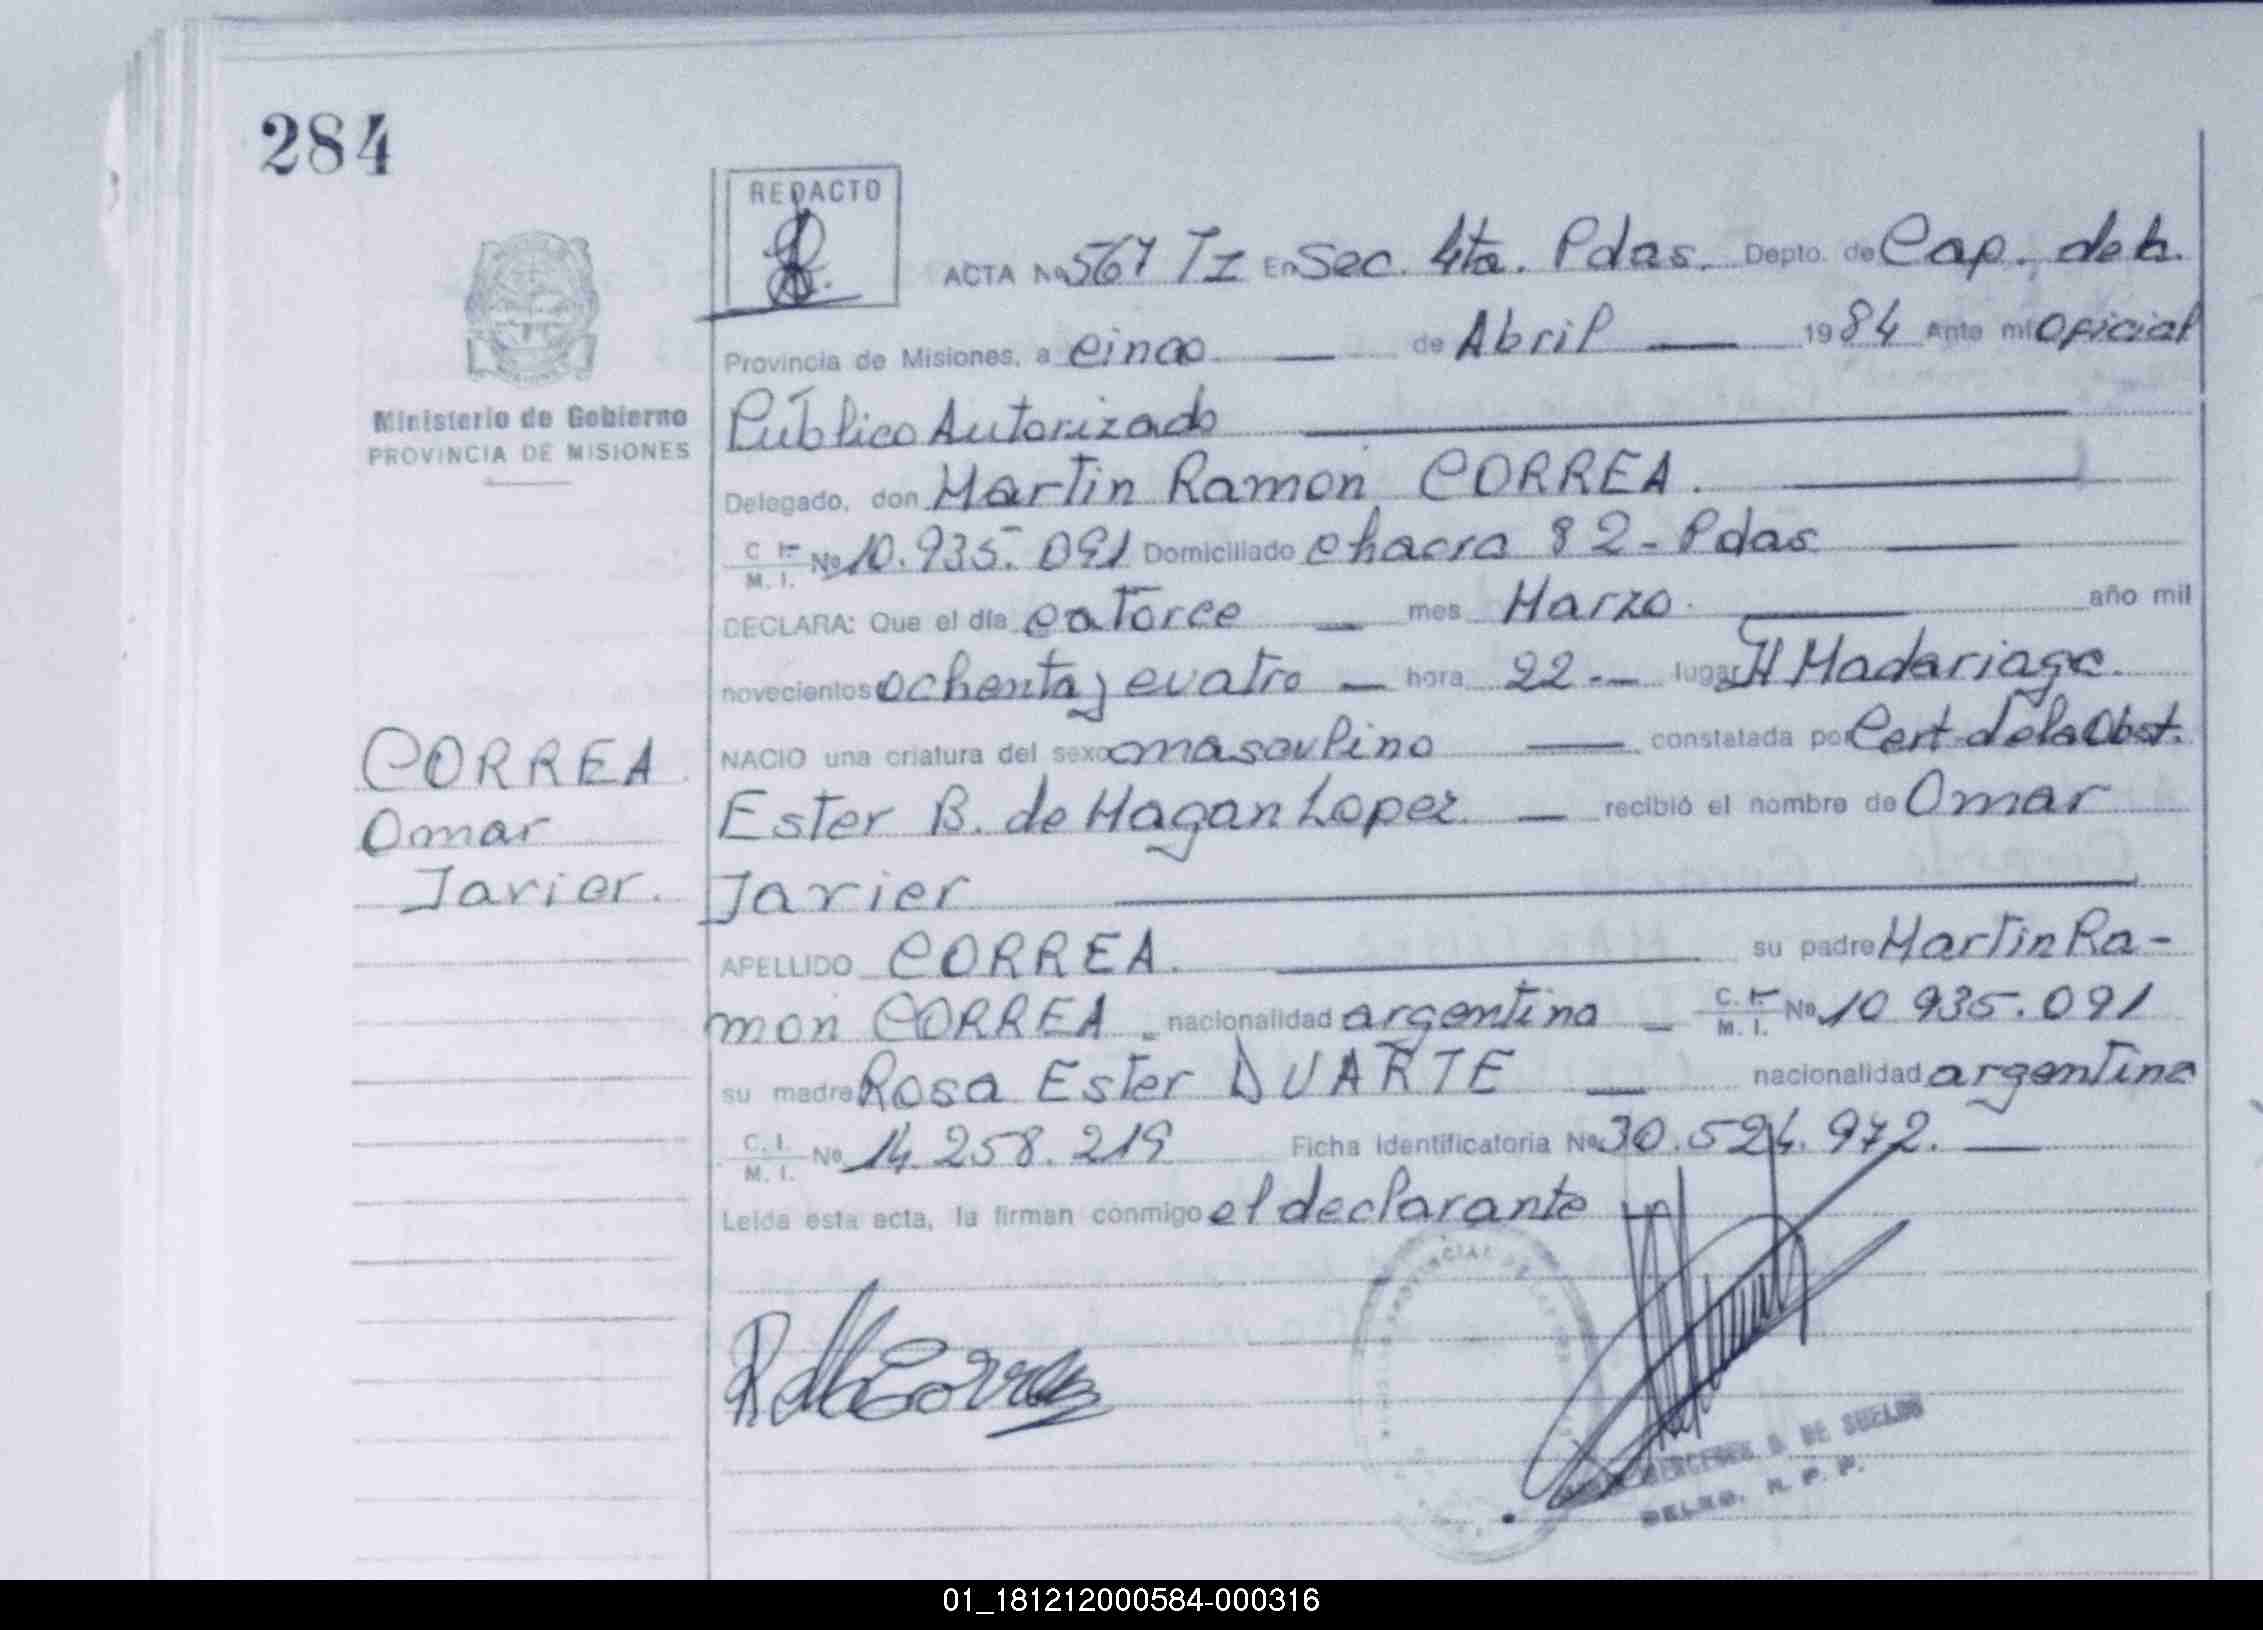 284
REDACTO
ACTA No 567 TI En Sec. 4ta. Pdas. Depto. de Cap. de la
Provincia de Misiones, a cinco de Abril 1984 Ante mi Oficial
Ministerio de Gobierno
PROVINCIA DE MISIONES
Público Autorizado
Delegado, don Martin Ramon CORREA.
C. I. M. I. No 10.935.091 Domiciliado chacra 82 - Pdas
DECLARA: Que el día catorce mes Marzo. año mil
novecientos ochenta y cuatro hora 22 lugar H Madariaga.
NACIO una criatura del sexo masculino constatada por Cert. de la Obst.
Ester B. de Hagan Lopez recibió el nombre de Omar
Javier
CORREA
Omar
Javier.
APELLIDO CORREA. su padre Martin Ra-
mon CORREA nacionalidad argentino C. I. M. I. No 10 935.091
su madre Rosa Ester DUARTE nacionalidad argentina
C. I. M. I. No 14.258.219 Ficha identificatoria No 30.524.972.
Leída esta acta, la firman conmigo el declarante
DE SUELDO
01_181212000584-000316